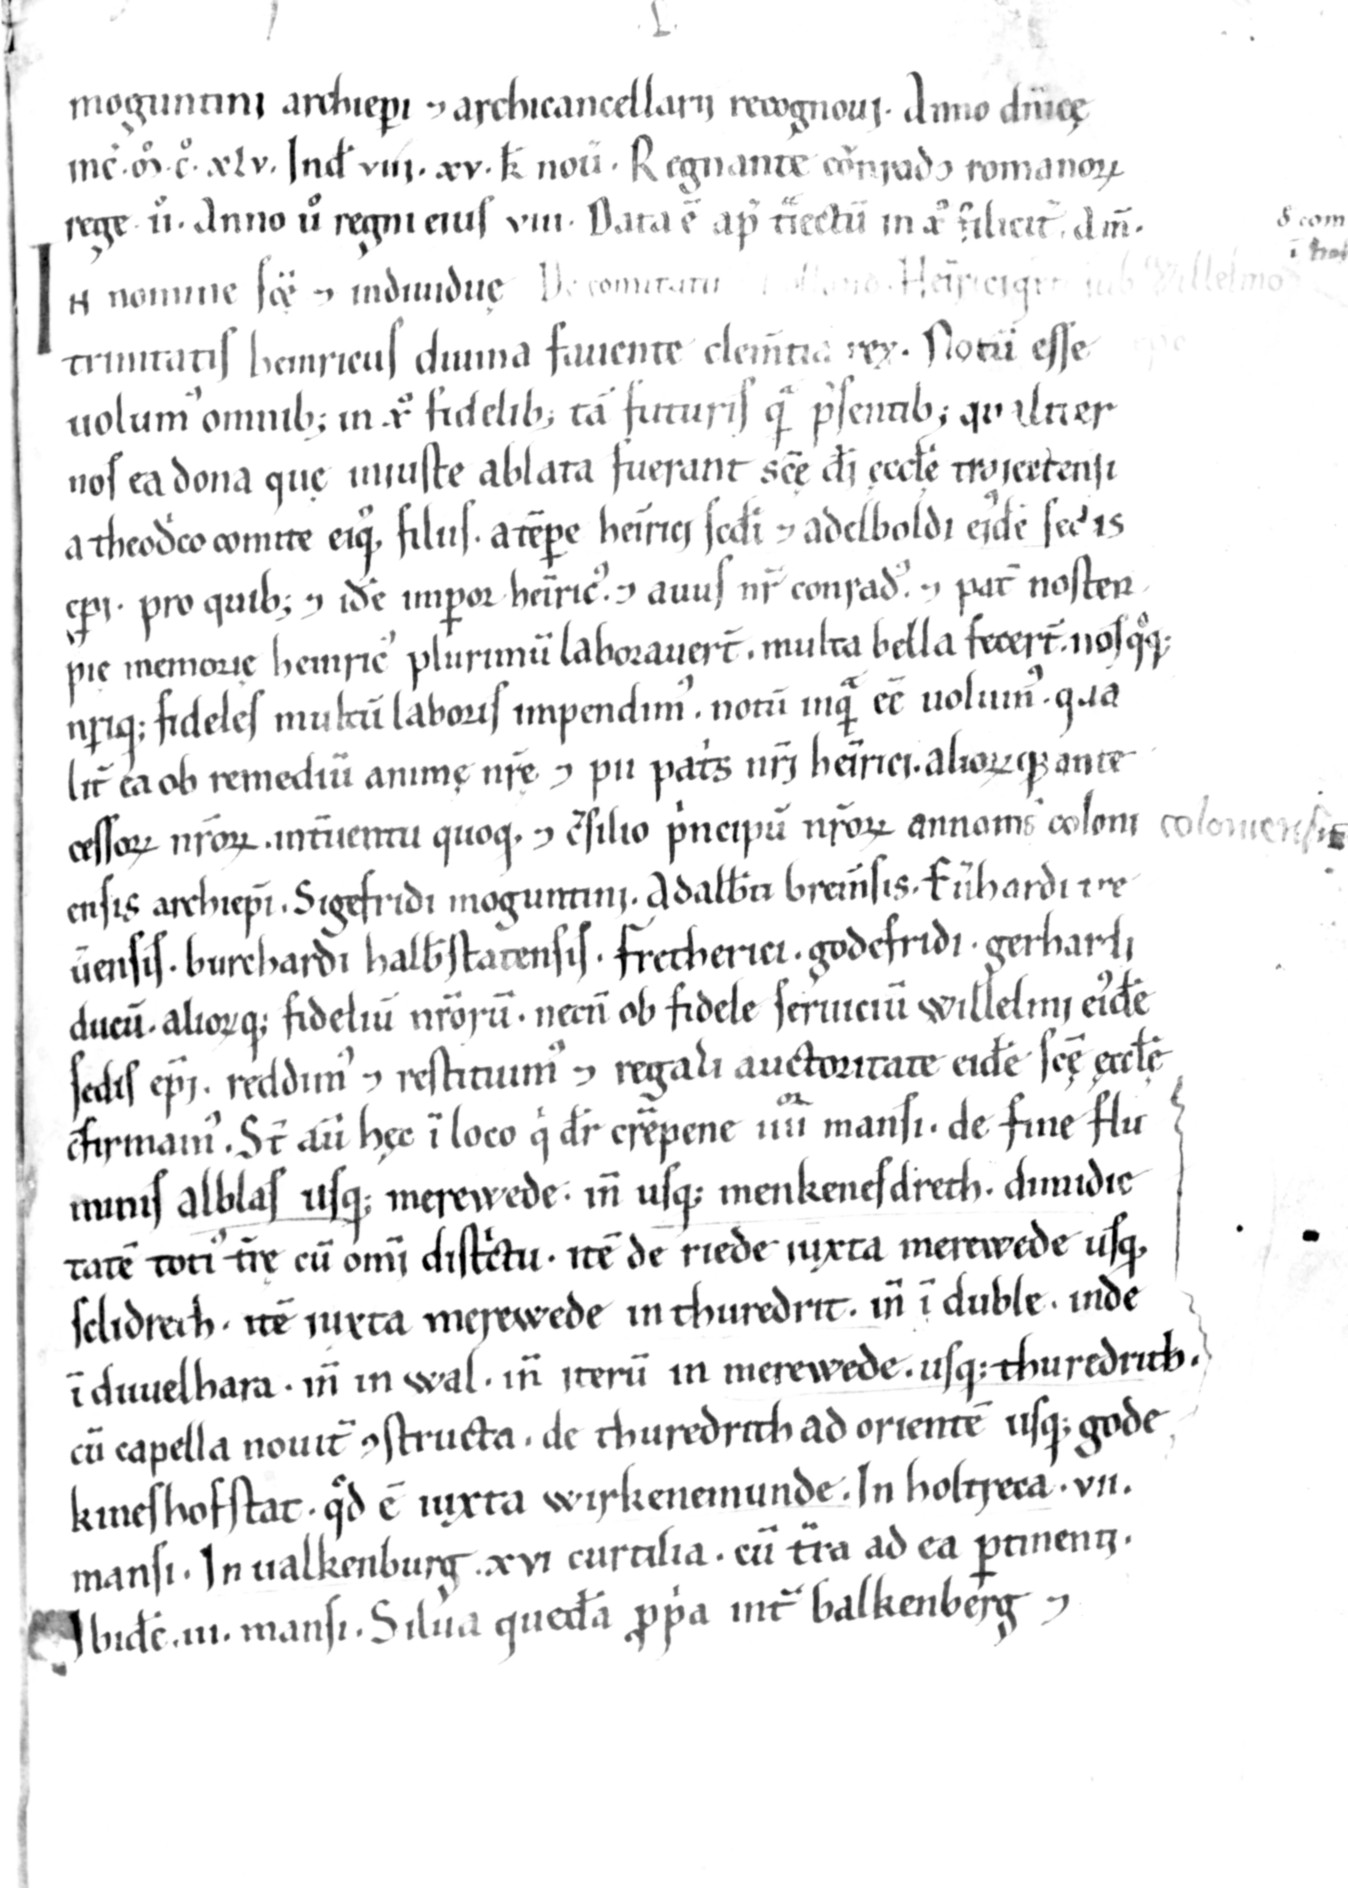 moguntini archiepı ⁊ archicancellarij recognoui. Anno dn̄icę
inc̄. ꝏ̊. c̊. xlv. Ind̄ viii. xv. k̄ nou̅. Regnante cōnrado romanoꝝ
rege ıı̊. Anno u̅o regni eius viii. Data ē ap̄ t̄iectū in xp̄o f̄ilicit̄. Am̄.
In nomine sc̄ę ⁊ indiuiduę De comitatu Heinrici sub Willelmo
trinitatis heinricus diuina fauente clem̄tia rex. Notū esse epo
uolumꝰ omnib; in xp̄o fidelib; tā futuris qᵃ̄ p̄sentib; qualiter
nos ea dona quę iniuste ablata fuerant sc̄ę dī ęccl̄ę traiectensi
a theod̄co comite eiꝰq; filiis. a tēꝑe hein̄rici sc̄di ⁊ adelboldi eiꝰdē sedis
ep̄i. pro quib; ⁊ idē imꝑor hein̄ricꝰ. ⁊ auus nr̄ conradꝰ. ⁊ pat̄ noster
pię memorię heinricꝰ plurimū laborauer̄t. multa bella fecer̄t. nos q̊q;
nr̄iq; fideles multū laboris impendimꝰ. notū inqᵃ̄ eē uolumꝰ. qua
lit̄ ea ob remediū animę nr̄ę ⁊ pii pat's nr̄i hein̄rici. alioꝝq; ante
cessoꝝ nr̄oꝝ. int̄uentu quoq; ⁊ c̄silio p'ncipū nr̄oꝝ annonis coloni coloniensis
ensis archiep̄i. Sigefridi moguntini. Adalb̄ti brem̄sis. Eu̅hardi tre
u̅ensis. burchardi halb̄statensis. fretherici. godefridi. gerhardi
ducū. alioꝝq; fideliū nr̄orū. necn̄ ob fidele seruiciū willelmi eiꝰdē
sedis ep̄i. reddimꝰ ⁊ restituimꝰ ⁊ regali auctoritate eidē sc̄ę ęccl̄ę
c̄firmamꝰ. St̄ au̅ hęc ī loco q' dr̄ crēpene iiiior mansi. de fine flu
minis alblas usq; merewede. in̄ usq; menkenesdrech. dimidie
tatē totiꝰ tr̄ę cū omī dist'ctu. itē de riede iuxta merewede usq;
sclidrech. itē iuxta merewede in thuredrit. in̄ ī duble. inde
ī diuuelhara. in̄ in wal. in̄ iterū in merewede. usq; thuredrith.
cū capella nouit̄ ꝯstructa. de thuredrith ad orientē usq; gode
kineshofstat. q̊d ē iuxta wirkenemunde. In holtreca. vii.
mansi. In ualkenburg. xvi curtilia. cū tr̄ra ad ea ꝑtinenti.
Ibidē. iii. mansi. Silua quedā ꝓp'a int̄ balkenberg ⁊